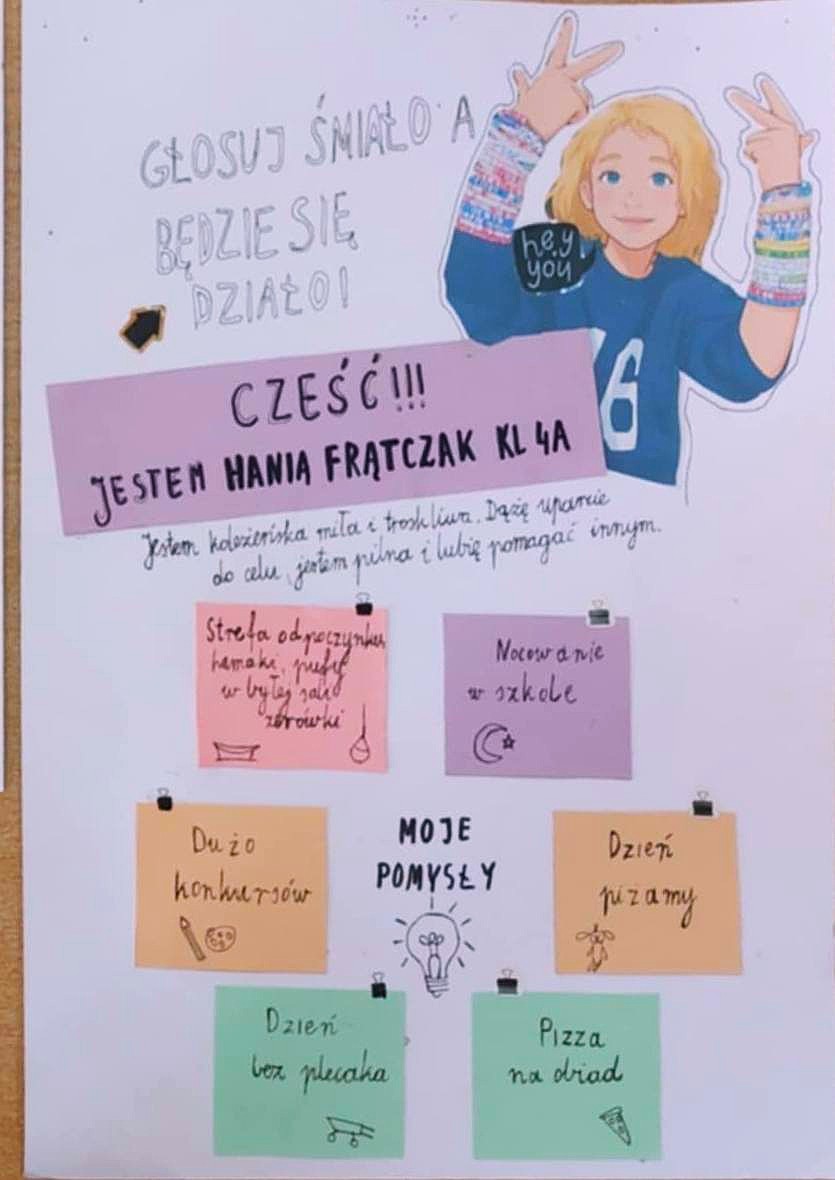 GŁOSUJ ŚMIAŁO A
BĘDZIE SIĘ
DZIAŁO!
hey
you
76
CZEŚĆ!!!
JESTEM HANIA FRĄTCZAK KL 4A
Jestem koleżeńska miła i troskliwa. Dążę uparcie
do celu, jestem pilna i lubię pomagać innym.
Strefa odpoczynku
hamaki, pufy
w byłej sali
zerówki
Nocowanie
w szkole
Dużo
konkursów
MOJE
POMYSŁY
Dzień
piżamy
Dzień
bez plecaka
Pizza
na obiad